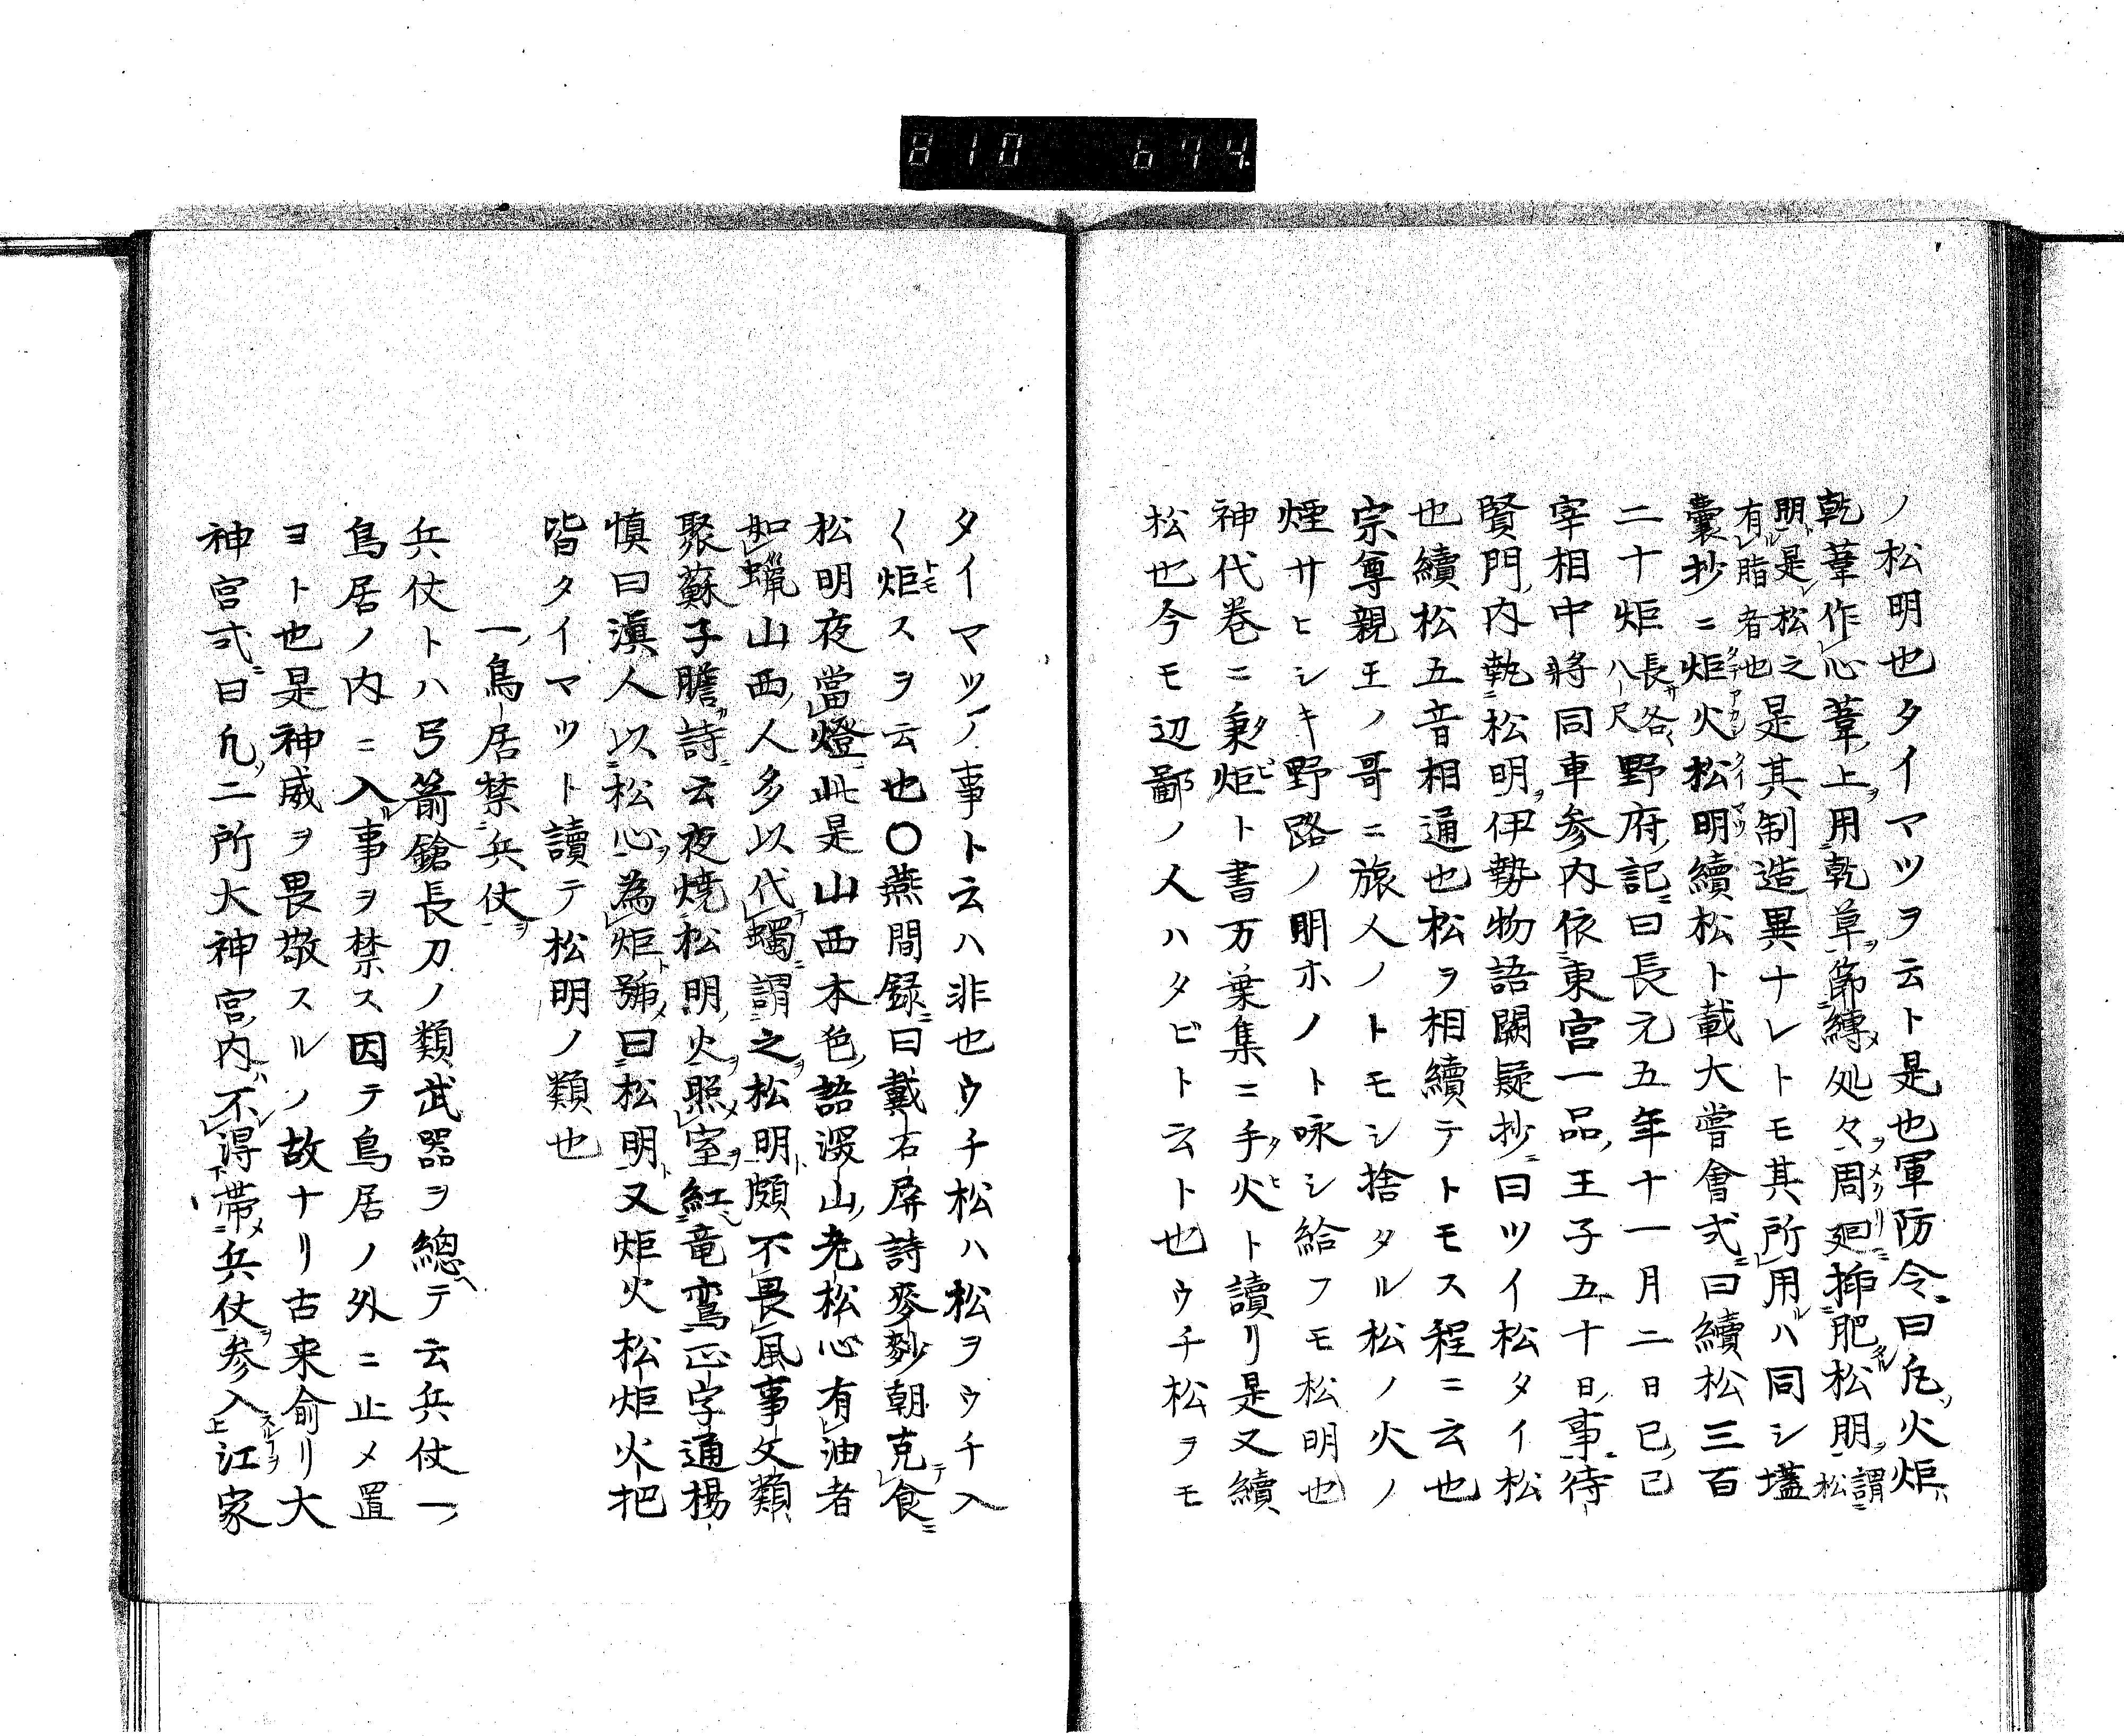 810 674.
ノ松明也タイマツヲ云ト是也軍防令曰凡火炬
乾葦作心葦上用乾草節縛処々周廻挿肥松明謂松
明是松之有脂者也是其制造異ナレトモ其所用ハ同シ壒
囊抄ニ炬火松明續松ト載大嘗會式曰續松三百
二十炬長各八尺野府記曰長元五年十一月二日己巳
宰相中將同車参内依東宮一品王子五十日事待
賢門内執松明伊勢物語闕疑抄曰ツイ松タイ松
也續松五音相通也松ヲ相續テトモス程ニ云也
宗尊親王ノ哥ニ旅人ノトモシ捨タル松ノ火ノ
煙サヒシキ野路ノ明ホノト咏シ給フモ松明也
神代巻ニ秉炬ト書万葉集ニ手火ト讀リ是又續
松也今モ辺鄙ノ人ハタビト云ト也ウチ松ヲモ
タイマツノ事ト云ハ非也ウチ松ハ松ヲウチ入
く炬スヲ云也〇燕間録曰戴石屏詩麥麨朝充食
松明夜當燈此是山西本色語深山老松心有油者
如蠟山西人多以代蠋謂之松明頗不畏風事文類
聚蘇子瞻詩云夜焼松明火照室紅竜鸞正字通楊
慎曰滇人以松心為炬號曰松明又炬火松炬火把
皆タイマツト讀テ松明ノ類也
一鳥居禁兵仗
兵仗トハ弓箭鎗長刀ノ類武器ヲ總テ云兵仗一
鳥居ノ内ニ入事ヲ禁ス因テ鳥居ノ外ニ止メ置
ヨト也是神威ヲ畏敬スルノ故ナリ古来俞リ大
神宮式曰凢二所大神宮内不得帯兵仗参入江家